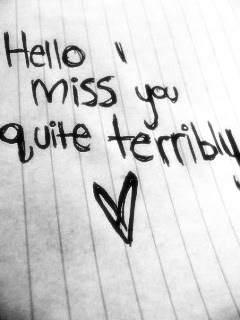 Hello I
miss you
quite terribly